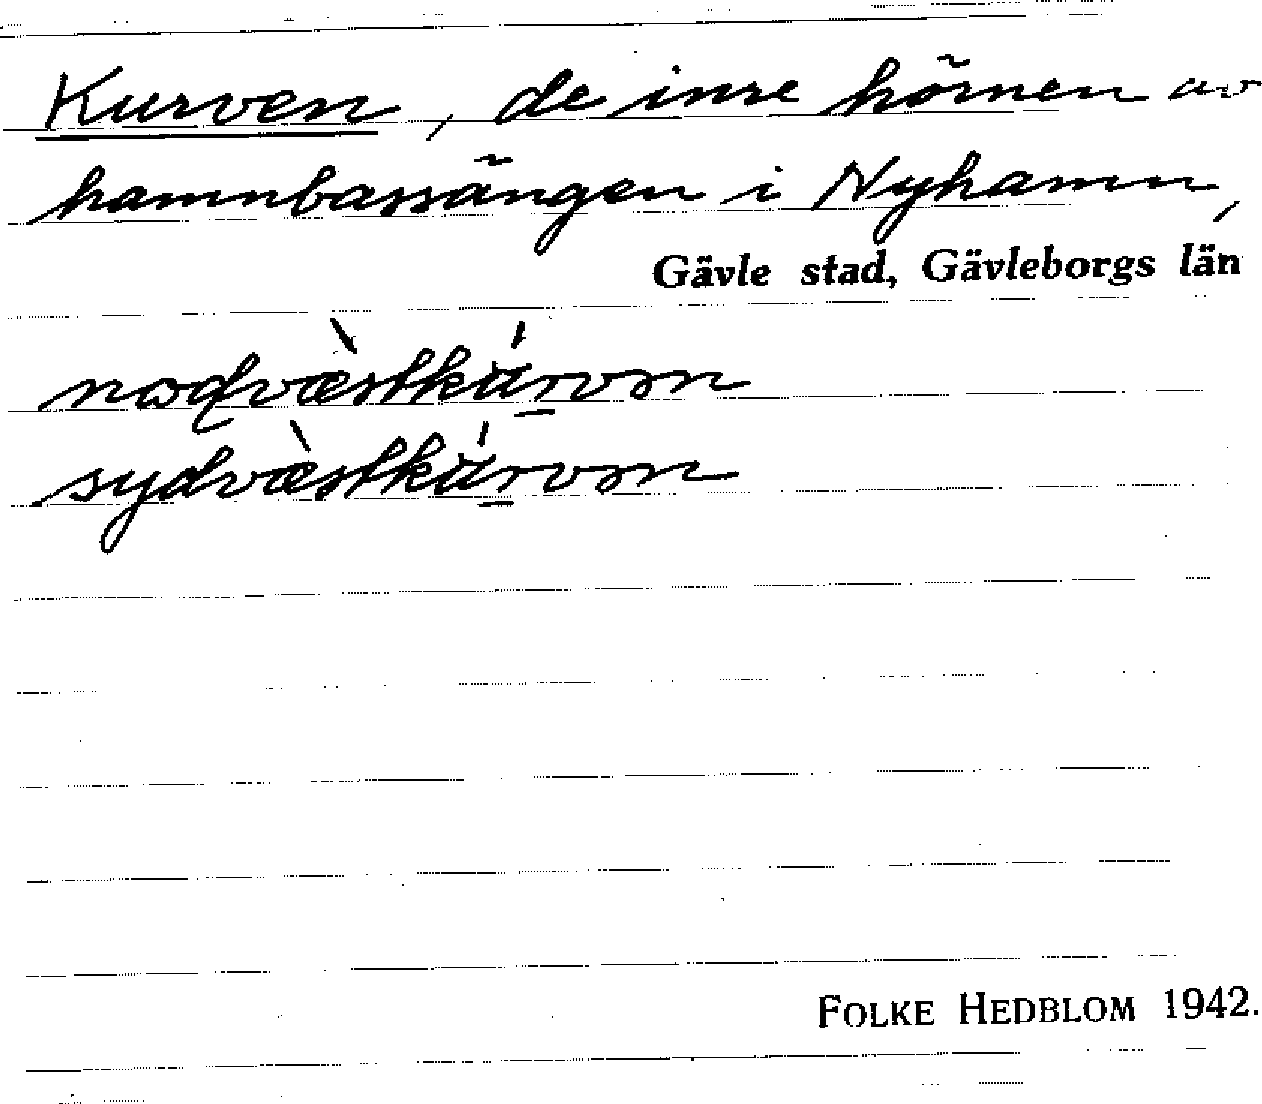 Kurven, de inre hörnen av
hamnbassängen i Nyhamn,
Gävle stad, Gävleborgs län
FOLKE HEDBLOM 1942.